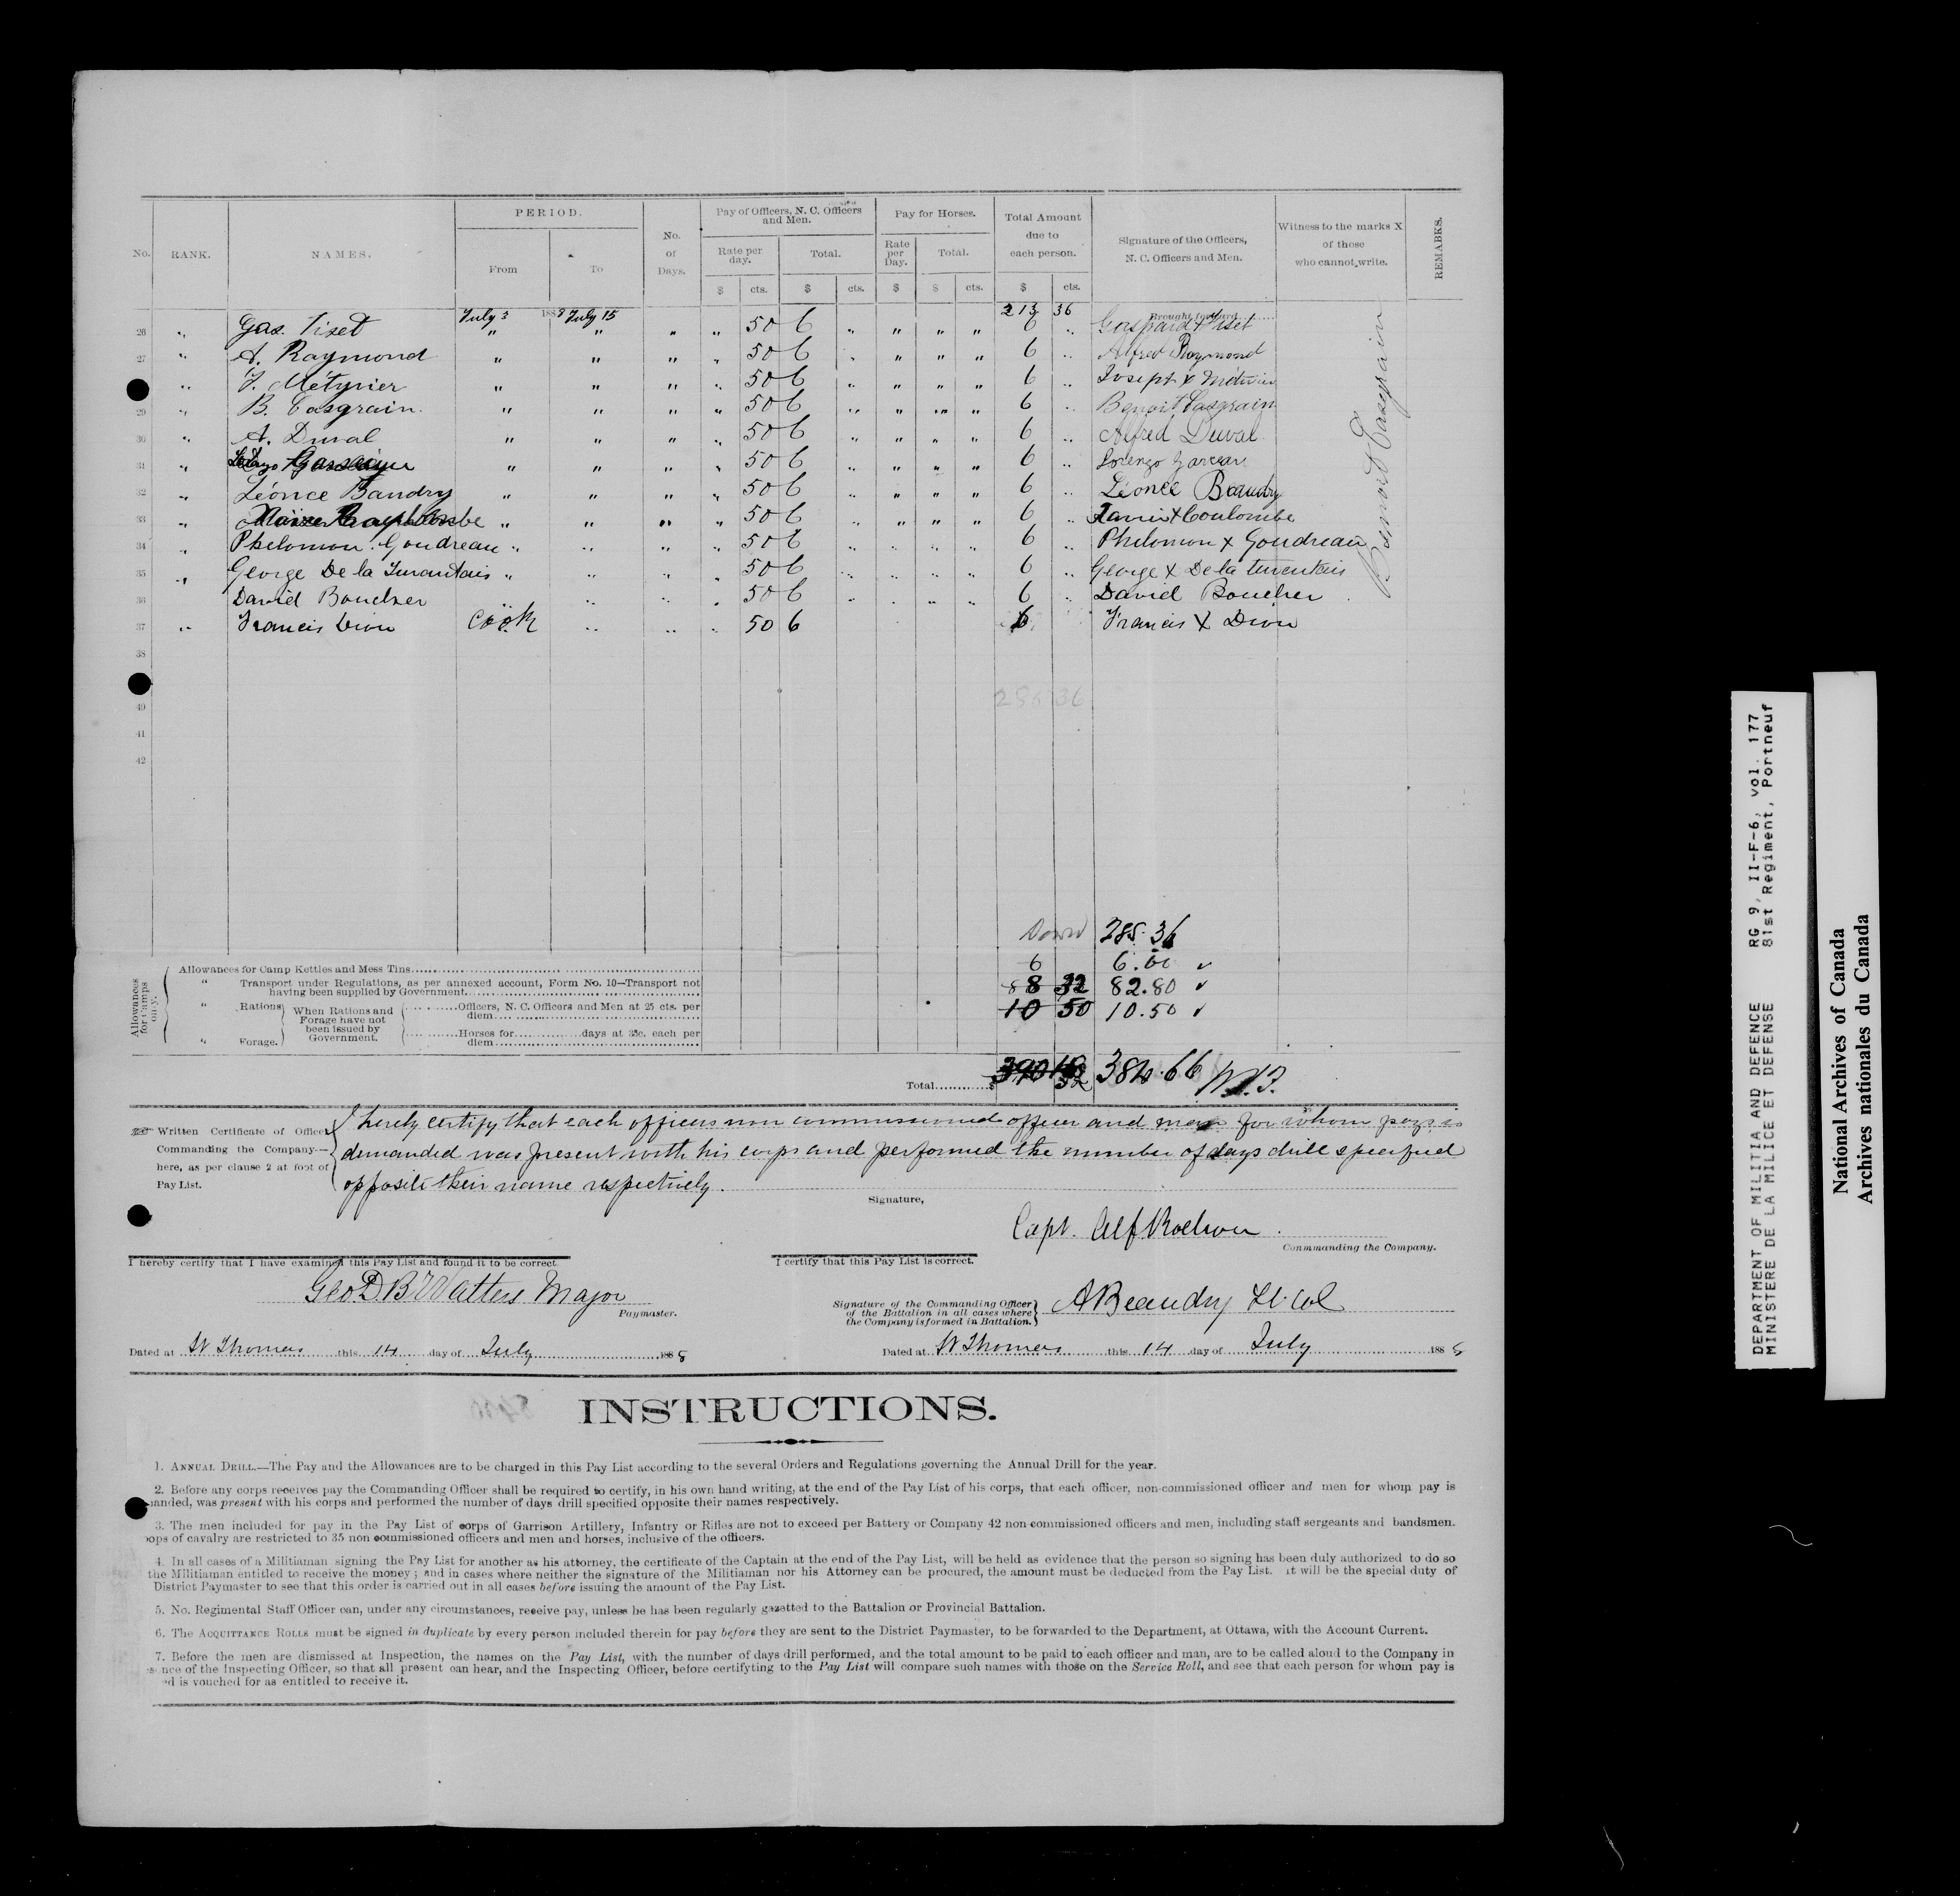 No. RANK. NAMES. PERIOD. From To No. of Days. Pay of Officers, N. C. Officers and Men. Rate per day. $ cts. Total. $ cts. Pay for Horses. Rate Per Day. $ Total. $ cts. Total Amount due to each person. $ cts. Signature of the Officers, N. C. Officers and Men. Witness to the marks X of those who cannot write. REMARKS.
July 3 1888 July 15 213 36 Brought forward
26 " Gas. Tiset " " " " 50 6 " " " " 6 " Gaspard X Tiset
27 " A. Raymond " " " " 50 6 " " " " 6 " Alfred Raymond
" J. Métivier " " " " 50 6 " " " " 6 " Joseph X Métivier
29 " B. Casgrain. " " " " 50 6 " " " " 6 " Benoit Casgrain
30 " A. Duval " " " " 50 6 " " " " 6 " Alfred Duval
31 " " " " " 50 6 " " " " 6 " Lorenzo Garceau
32 " Léonce Baudry " " " " 50 6 " " " " 6 " Léonce Beaudry
33 " " " " " 50 6 " " " " 6 " X Coulombe
34 " Philomon Goudreau " " " " 50 6 " " " " 6 " Philomon X Goudreau
35 " George De la " " " " 50 6 " " " " 6 " George X De la
36 David Boucher " " " " 50 6 " " " " 6 " David Boucher
37 " Francis Dion Cook " " " 50 6 6 Francis X Dion
Benoit Casgrain
38
36
40
41
42
285.36
Allowances for Camps only.
Allowances for Camp Kettles and Mess Tins 6 6.00
" Transport under Regulations, as per annexed account, Form No. 10—Transport not having been supplied by Government 88 32 82.80
" Rations When Rations and Forage have not been issued by Government. Officers, N. C. Officers and Men at 25 cts. per diem 10 50 10.50
" Forage. Horses for days at 35c. each per diem
Total $ 384.66
Written Certificate of Officer Commanding the Company—here, as per clause 2 at foot of Pay List.
I hereby certify that each officers non commissioned officer and men for whom pay is
demanded was present with his corps and performed the number of days drill specified
opposite their name respectively.
Signature,
Capt. Alf
Commanding the Company.
I hereby certify that I have examined this Pay List and found it to be correct.
Geo D. B Watters Major
Paymaster.
Dated at St Thomas this 14 day of July 1888
I certify that this Pay List is correct.
Signature of the Commanding Officer of the Battalion in all cases where the Company is formed in Battalion.
A Beaudry Lt. Col
Dated at St Thomas this 14 day of July 1888
INSTRUCTIONS.
1. ANNUAL DRILL.—The Pay and the Allowances are to be charged in this Pay List according to the several Orders and Regulations governing the Annual Drill for the year.
2. Before any corps receives pay the Commanding Officer shall be required to certify, in his own hand writing, at the end of the Pay List of his corps, that each officer, non-commissioned officer and men for whom pay is
manded, was present with his corps and performed the number of days drill specified opposite their names respectively.
3. The men included for pay in the Pay List of corps of Garrison Artillery, Infantry or Rifles are not to exceed per Battery or Company 42 non commissioned officers and men, including staff sergeants and bandsmen.
ops of cavalry are restricted to 35 non commissioned officers and men and horses, inclusive of the officers.
4. In all cases of a Militiaman signing the Pay List for another as his attorney, the certificate of the Captain at the end of the Pay List, will be held as evidence that the person so signing has been duly authorized to do so
the Militiaman entitled to receive the money; and in cases where neither the signature of the Militiaman nor his Attorney can be procured, the amount must be deducted from the Pay List. It will be the special duty of
District Paymaster to see that this order is carried out in all cases before issuing the amount of the Pay List.
5. No. Regimental Staff Officer can, under any circumstances, receive pay, unless he has been regularly gazetted to the Battalion or Provincial Battalion.
6. The ACQUITTANCE ROLLS must be signed in duplicate by every person included therein for pay before they are sent to the District Paymaster, to be forwarded to the Department, at Ottawa, with the Account Current.
7. Before the men are dismissed at Inspection, the names on the Pay List, with the number of days drill performed, and the total amount to be paid to each officer and man, are to be called aloud to the Company in
nce of the Inspecting Officer, so that all present can hear, and the Inspecting Officer, before certifying to the Pay List will compare such names with those on the Service Roll, and see that each person for whom pay is
d is vouched for as entitled to receive it.
DEPARTMENT OF MILITIA AND DEFENCE RG 9, II-F-6, vol. 177
MINISTERE DE LA MILICE ET DEFENSE 81st Regiment, Portneuf
National Archives of Canada
Archives nationales du Canada